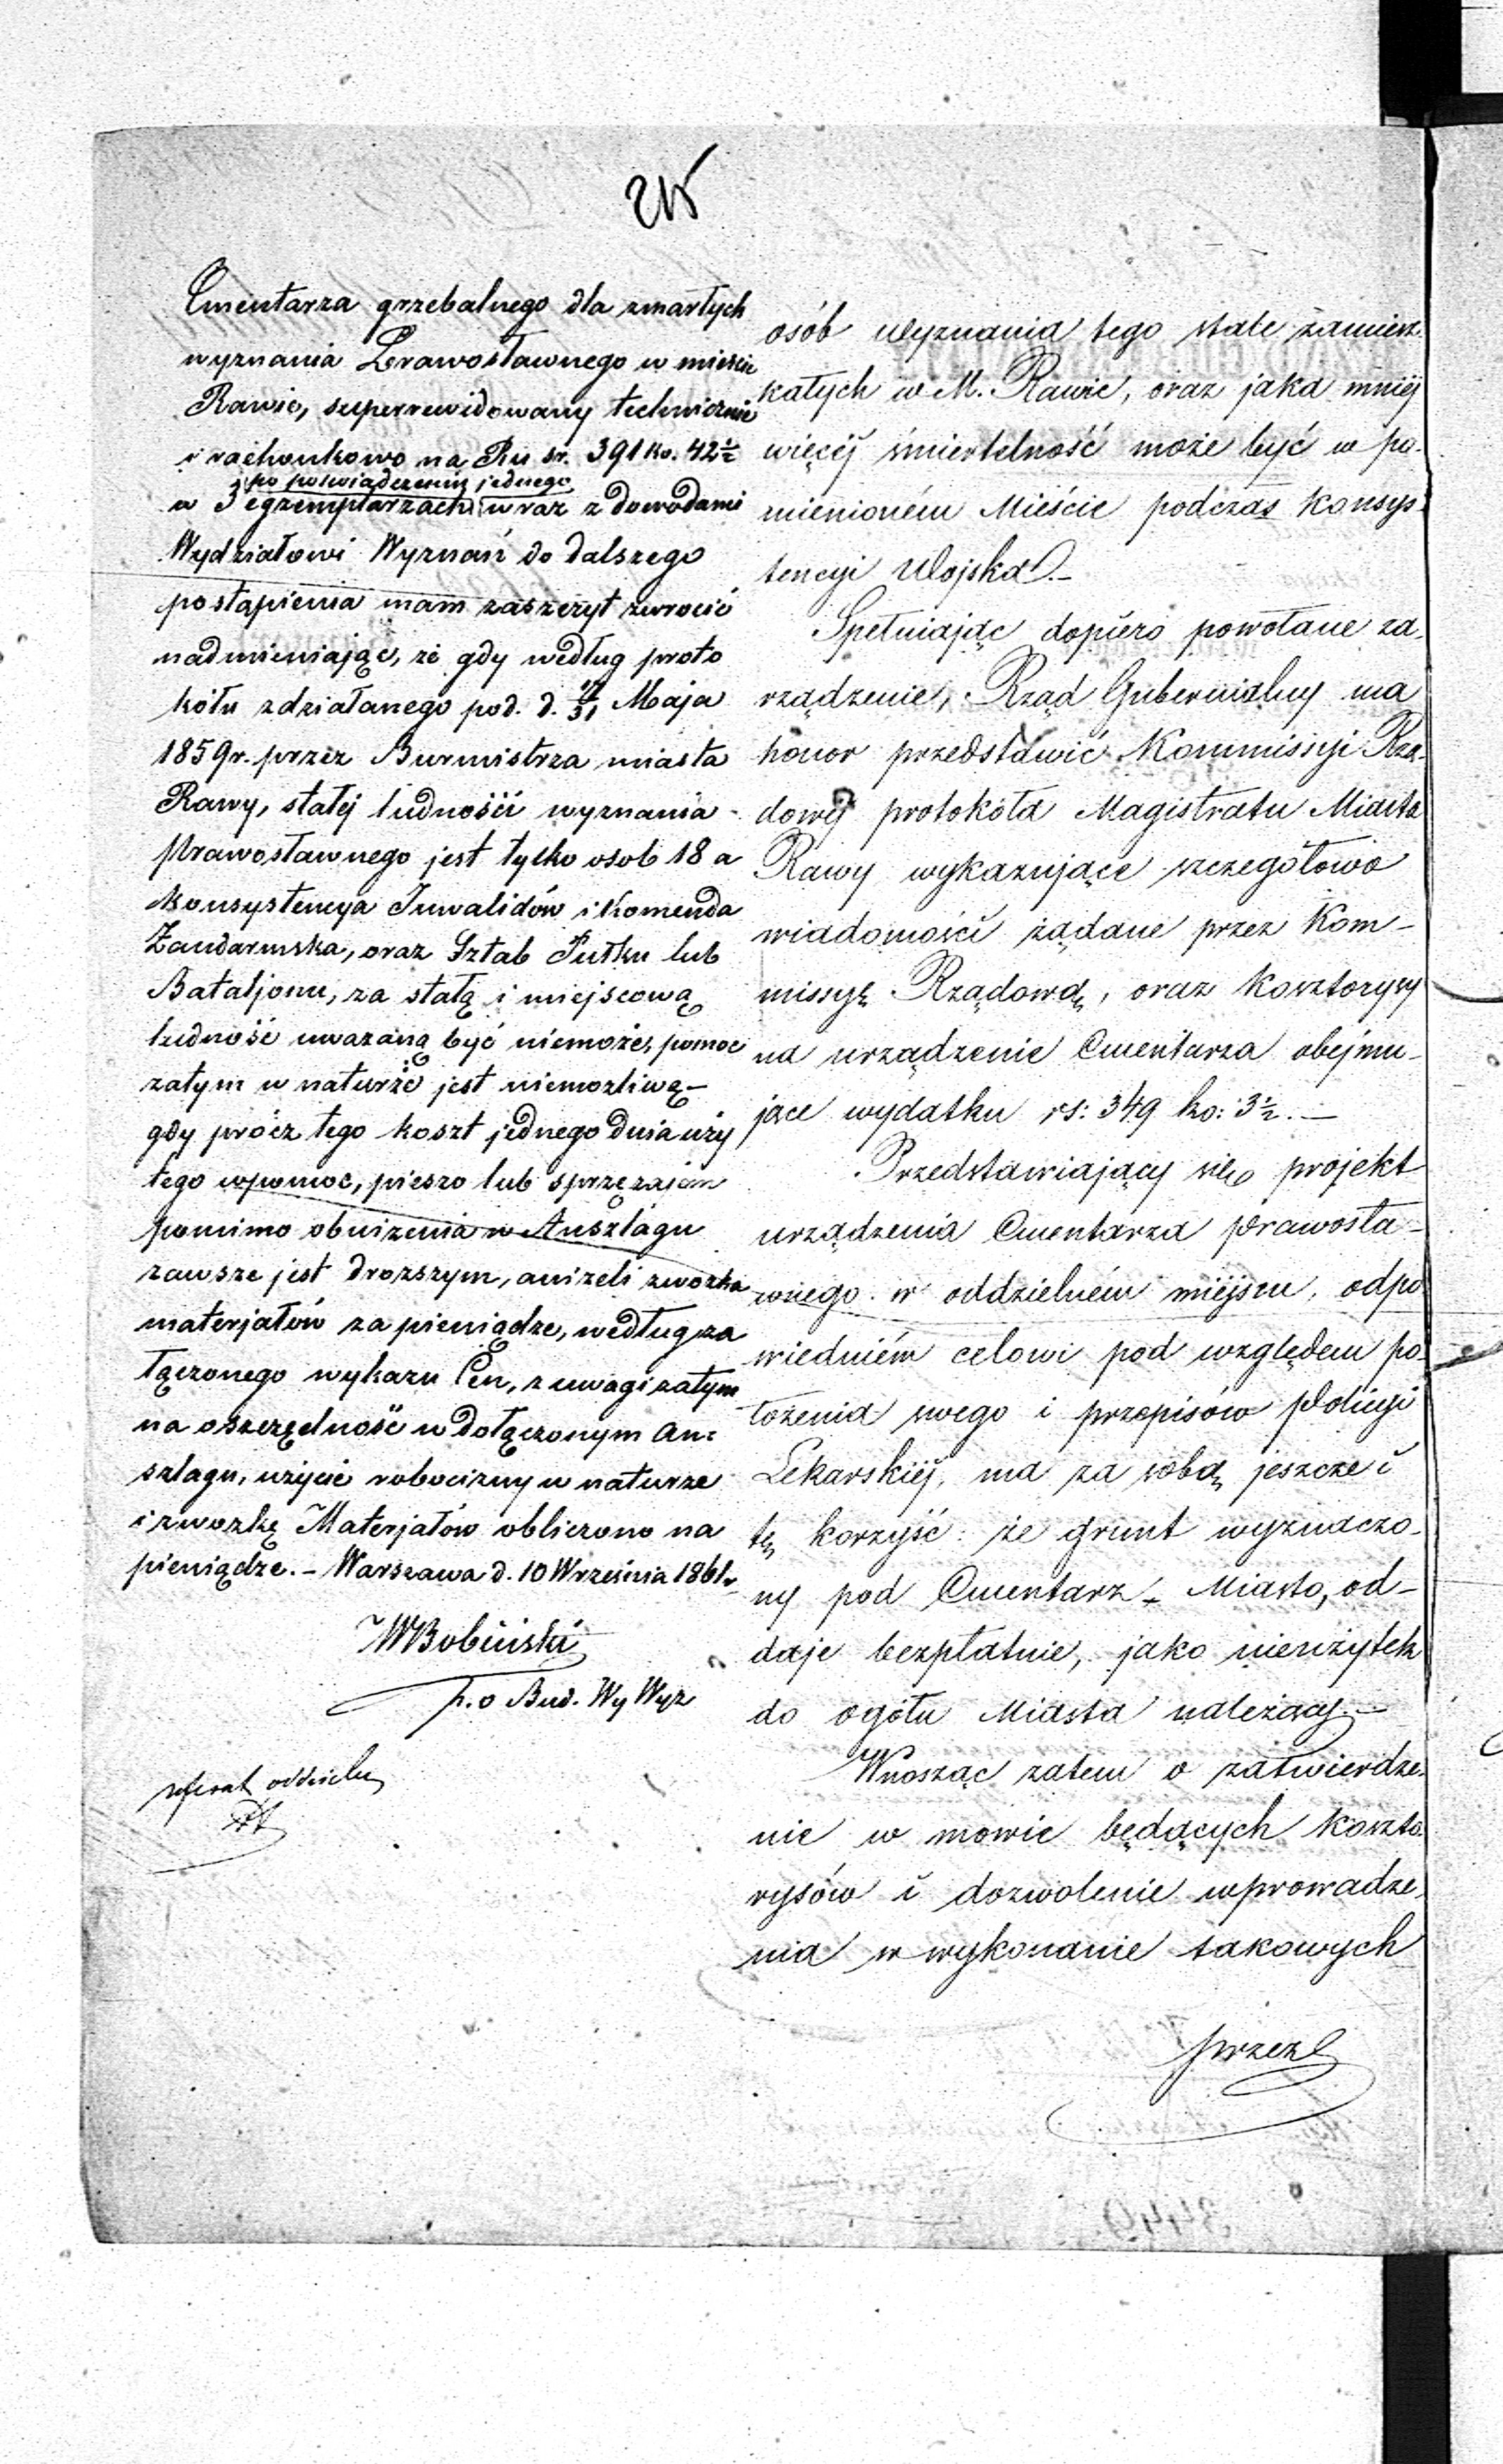 215
Cmentarza grzebalnego dla zmarłych
wyznania Prawosławnego w mieście
Rawie, superrewidowany technicznie
i rachunkowo na Ru sr. 391 ko. 42½
po poświadczeniu jednego
w 3 egzemplarzach wraz z dowodami
Wydziałowi Wyznań do dalszego
postąpienia mam zaszczyt zwrócić
nadmieniając, że gdy według proto
kółu zdziałanego pod. d. 19/31 Maja
1859 r. przez Burmistrza miasta
Rawy, stałej ludności wyznania
Prawosławnego jest tylko osob 18 a
Konsystencya Inwalidów i Komenda
Żandarmska, oraz Sztab Pułku lub
Bataljonu, za stałą i miejscową
ludność uważaną być niemoże, pomoc
zatym w naturze jest niemożliwą –
gdy prócz tego koszt jednego dnia uży
tego w pomoc, pieszo lub sprzężajem
pomimo obniżenia w Anszlagu
zawsze jest droższym, aniżeli zwózka
materjałów za pieniądze, według za
łączonego wykazu Cen, z uwagi zatym
na oszczędność w dołączonym An=
szlagu, użycie robocizny w naturze
i zwózkę Materjałów obliczono na
pieniądze. – Warszawa d. 10 Września 1861 r.
WBobiński
p. o Bud. Wy Wyz
referat oddzielny
osób wyznania tego stale zamiesz-
kałych w M. Rawie, oraz jaka mniej
więcéj śmiertelność może być w po-
mienioném Mieście podczas Konsys-
tencyi Wojska. –
Spełniając dopiéro powołane za-
rządzenie, Rząd Gubernialny ma
honor przedstawić Kommissyi Rzą-
dowej protokóła Magistratu Miasta
Rawy wykazujące szczegółowo
wiadomości żądane przez Kom-
missyę Rządową, oraz Kosztorysy
na urządzenie Cmentarza obejmu-
jące wydatku rs: 349 ko: 3½. –
Przedstawiający się projekt
urządzenia Cmentarza prawosła-
wnego w oddzielném miejscu, odpo
wiedniém celowi pod względem po-
łożenia swego i przepisów Policyi
Lekarskiéj, ma za sobą jeszcze i
tę korzyść: że grunt wyznaczo-
ny pod Cmentarz, Miasto, od-
daje bezpłatnie, jako nieużytek
do ogółu Miasta należący. –
Wnosząc zatem o zatwierdze-
nie w mowie będących Koszto-
rysów i dozwolenie wprowadze-
nia w wykonanie takowych
przez